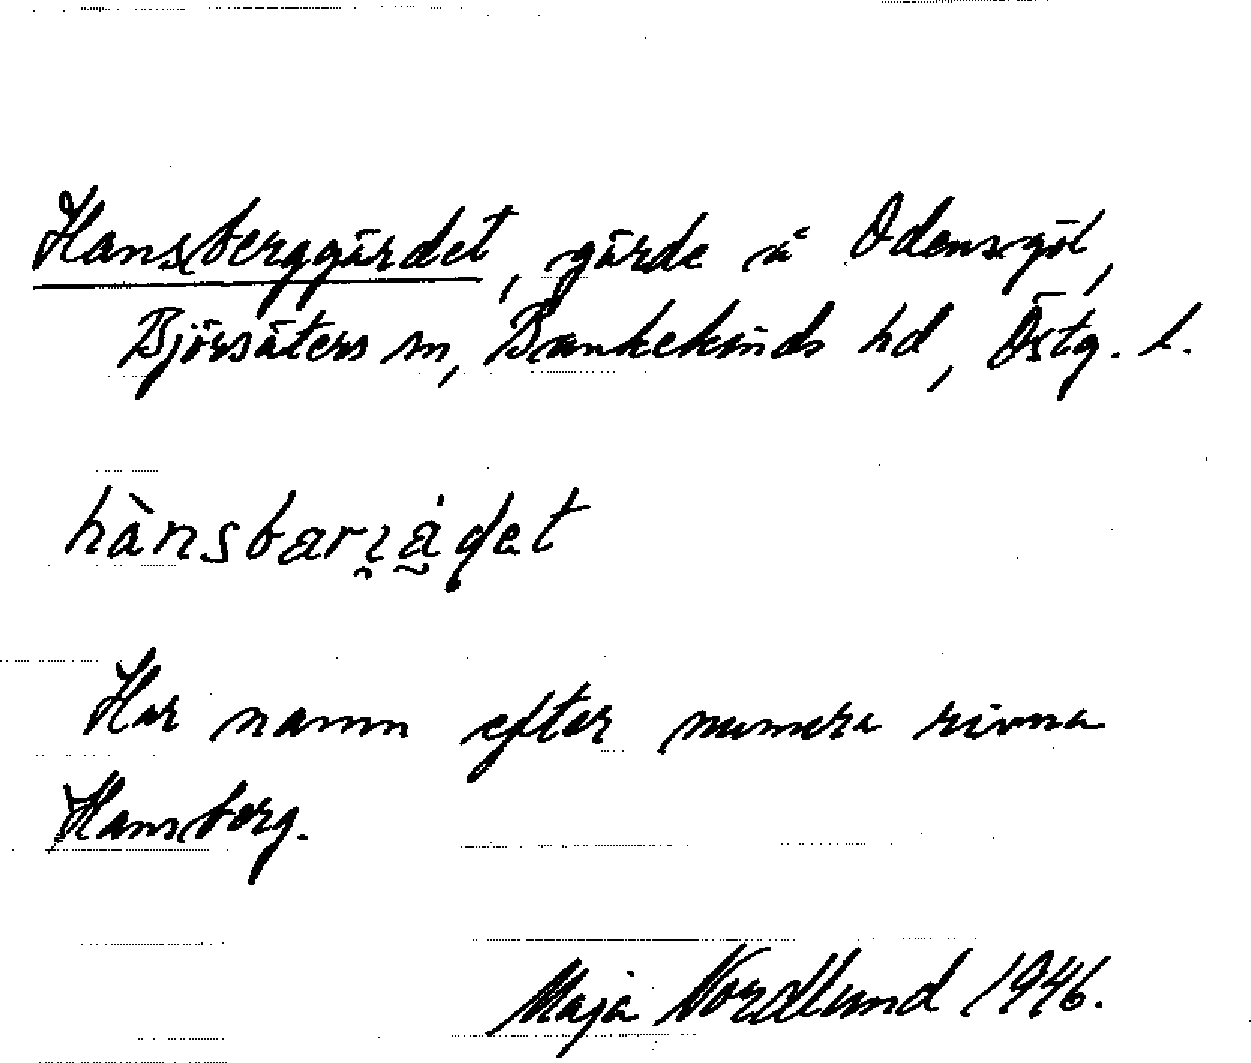 Hansberggärdet, gärde å Odensgöl,
Björsäters sn, Bankekinds hd, Östg. l.
Har namn efter numera rivna
Hansberg.
Maja Nordlund 1946.